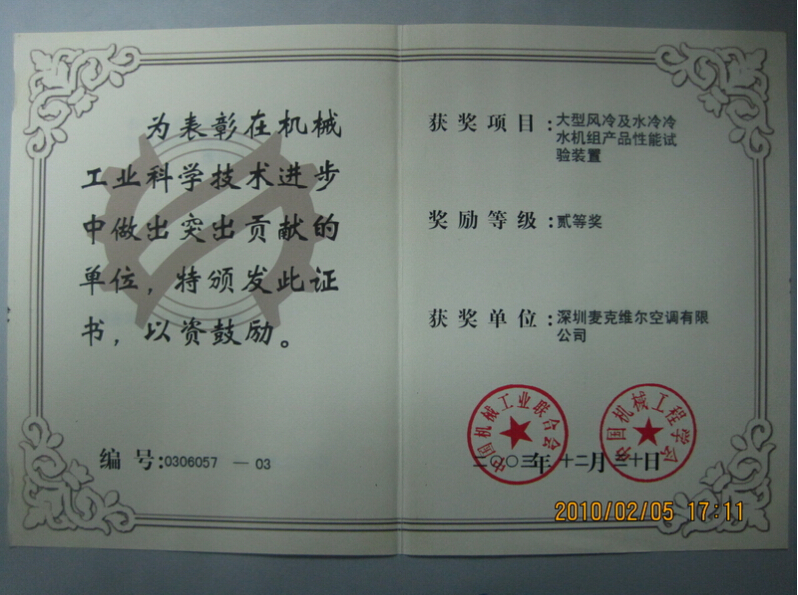 为表彰在机械
工业科学技术进步
中做出突出贡献的
单位，特颁发此证
书，以资鼓励。
编号:0306057 — 03
获奖项目:大型风冷及水冷冷
水机组产品性能试
验装置
奖励等级:贰等奖
获奖单位:深圳麦克维尔空调有限
公司
中国机械工业联合会
中国机械工程学会
二〇〇三年十二月三十日
2010/02/05 17:11